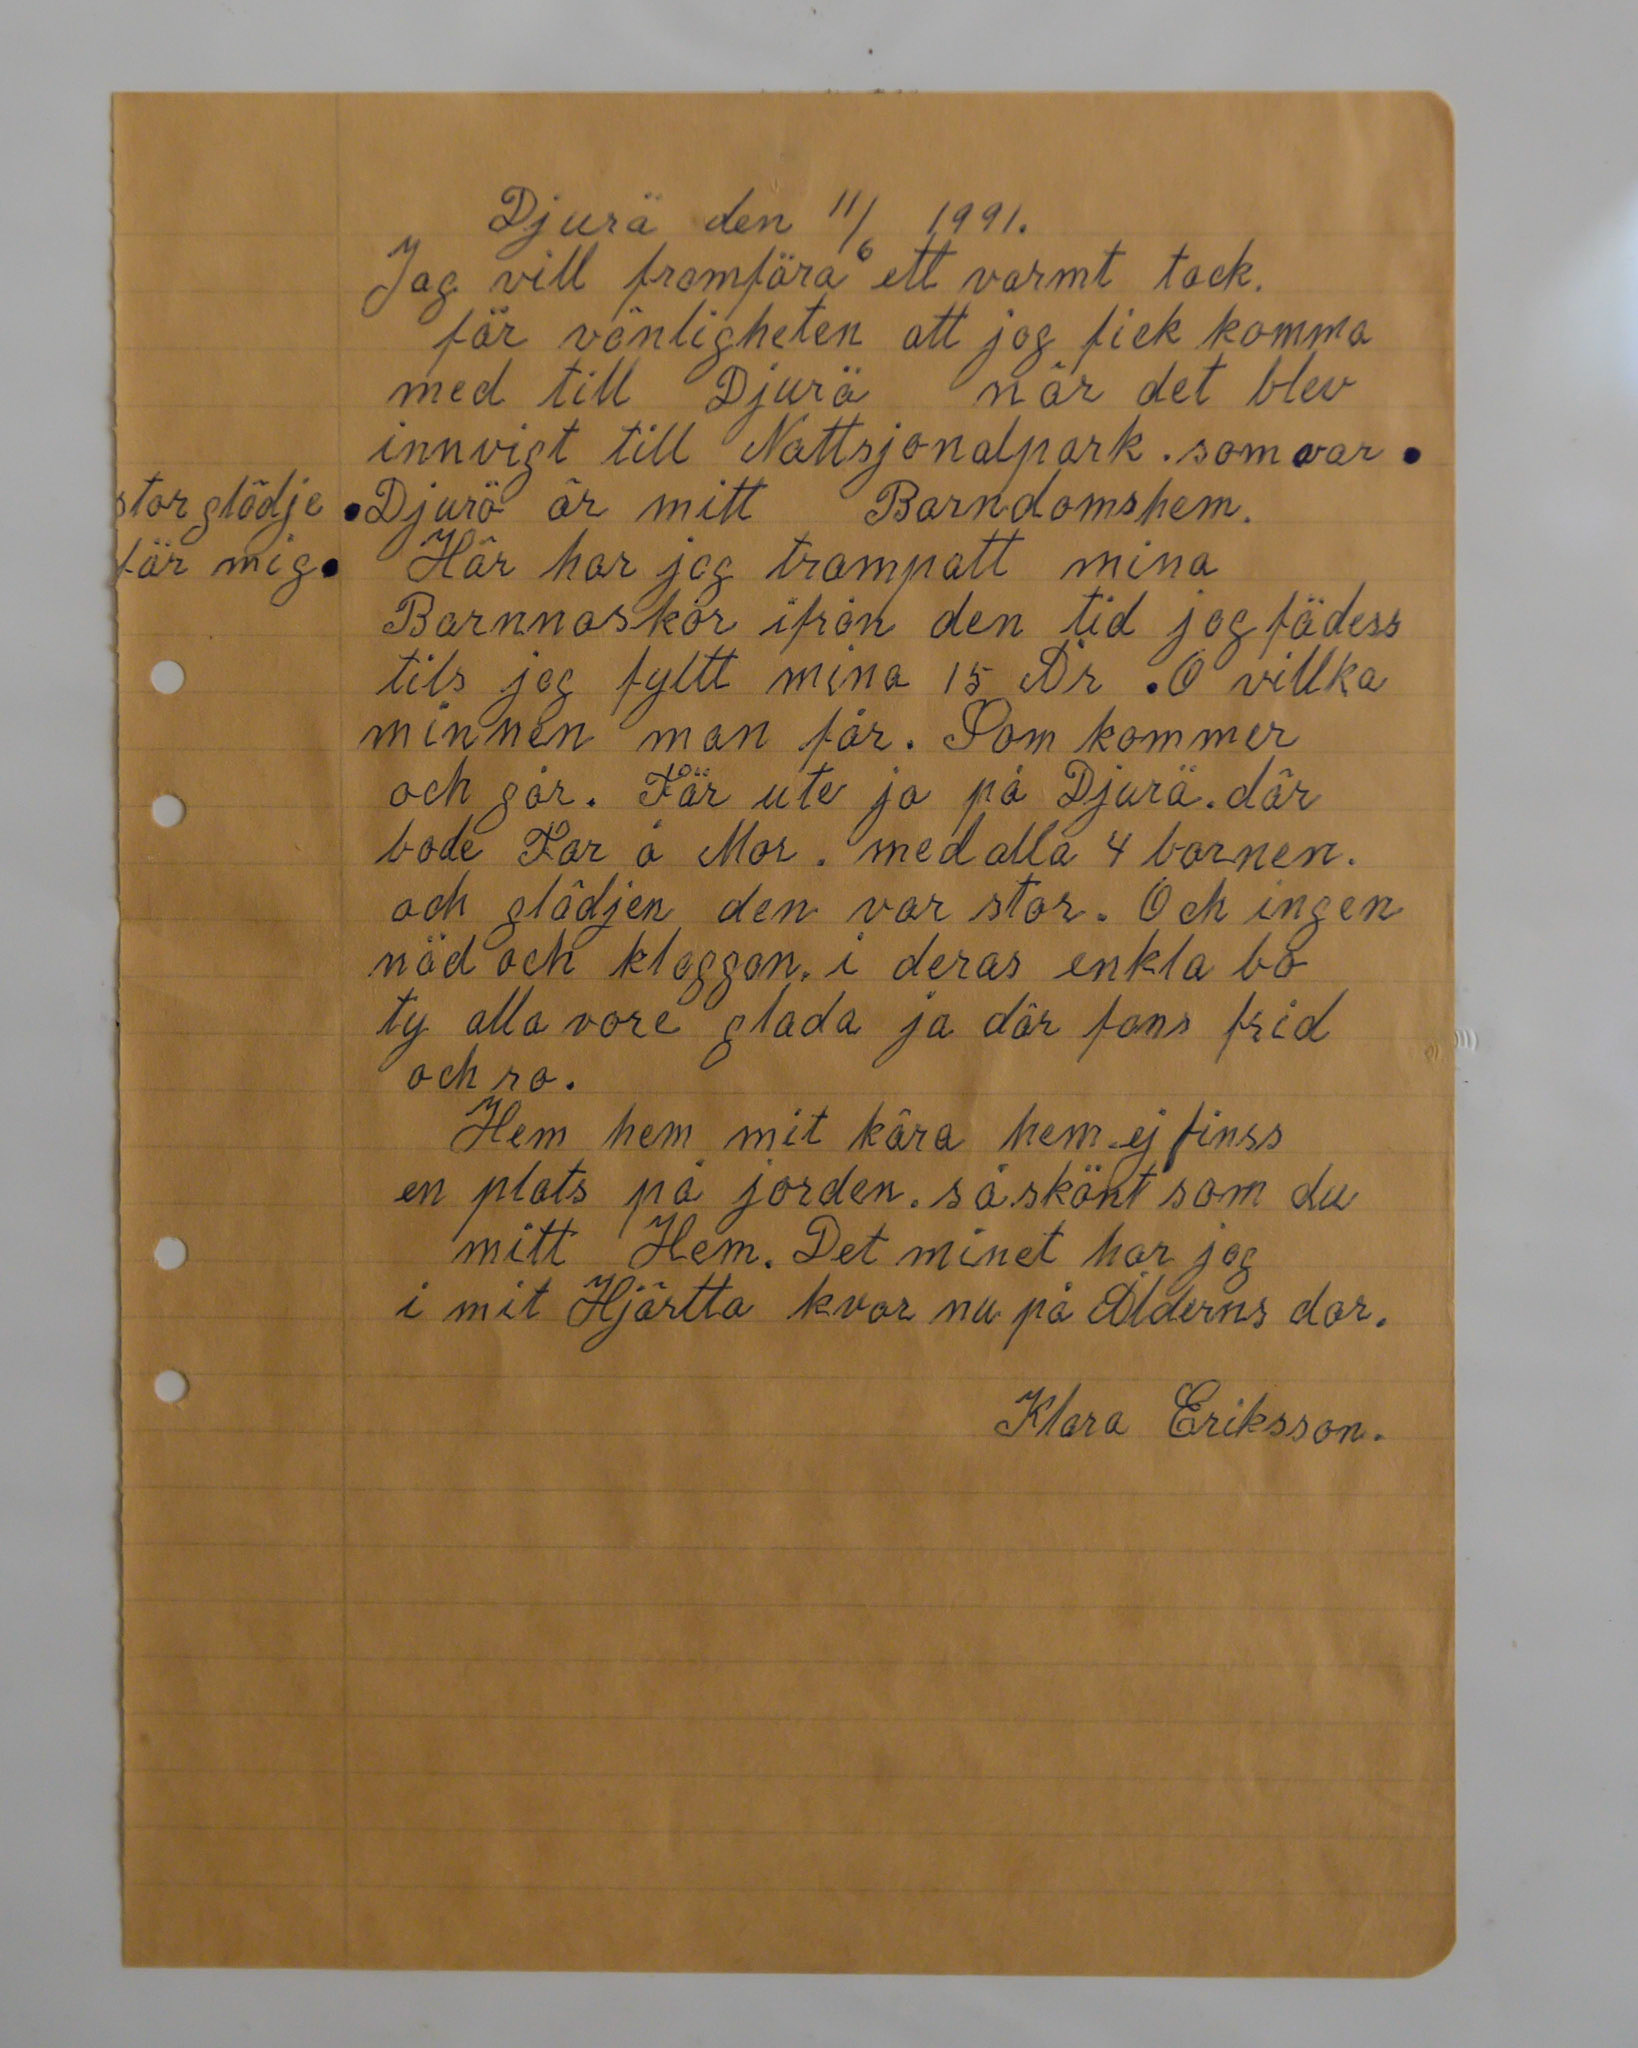 Djurö den 11/6 1991.
Jag vill framföra ett varmt tack.
för vänligheten att jag fick komma
med till Djurö när det blev
innvigt till Nattsjonalpark. som var •
stor glädje
för mig •
• Djurö är mitt Barndomshem.
Här har jag trampatt mina
Barnnaskor ifrån den tid jag födess
tils jag fyltt mina 15 År. O villka
minnen man får. Som kommer
och går. För ute ja på Djurö. där
bode Far å Mor. med alla 4 barnen.
och glädjen den var stor. Och ingen
nöd och klaggan. i deras enkla bo
ty alla vore glada ja där fans frid
och ro.
Hem hem mit kära hem. ej finss
en plats på jorden. så skönt som du
mitt Hem. Det minet har jag
i mit Hjärtta kvar nu på Ålderns dar.
Klara Eriksson.